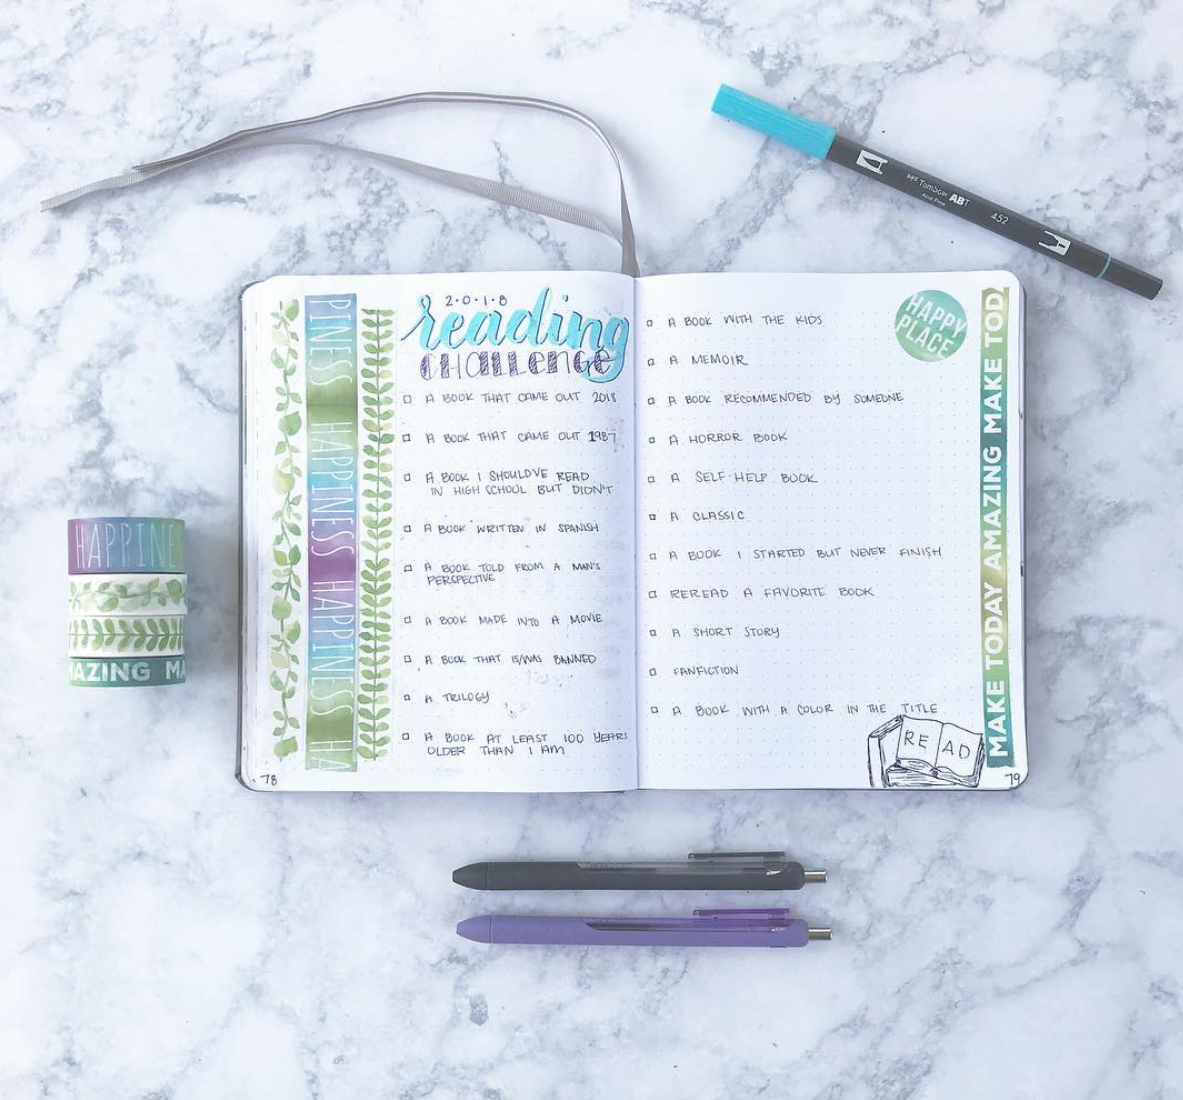 2·0·1·8
reading
CHALLENGE
A BOOK THAT CAME OUT 2018
A BOOK THAT CAME OUT 1987
A BOOK I SHOULDVE READ
IN HIGH SCHOOL BUT DIDN'T
A BOOK WRITTEN IN SPANISH
A BOOK TOLD FROM A MAN'S
PERSPECTIVE
A BOOK MADE INTO A MOVIE
A BOOK THAT IS/WAS BANNED
A TRILOGY
A BOOK AT LEAST 100 YEARS
OLDER THAN I AM
78
PINESS HAPPINESS HAPPINESS HA
A BOOK WITH THE KIDS
A MEMOIR
A BOOK RECOMMENDED BY SOMEONE
A HORROR BOOK
A SELF-HELP BOOK
A CLASSIC
A BOOK I STARTED BUT NEVER FINISH
REREAD A FAVORITE BOOK
A SHORT STORY
FANFICTION
A BOOK WITH A COLOR IN THE TITLE
HAPPY
PLACE
MAKE TODAY AMAZING MAKE TOD
READ
79
HAPPINE
AZING MA
Tombow ABT
Acid Free
452